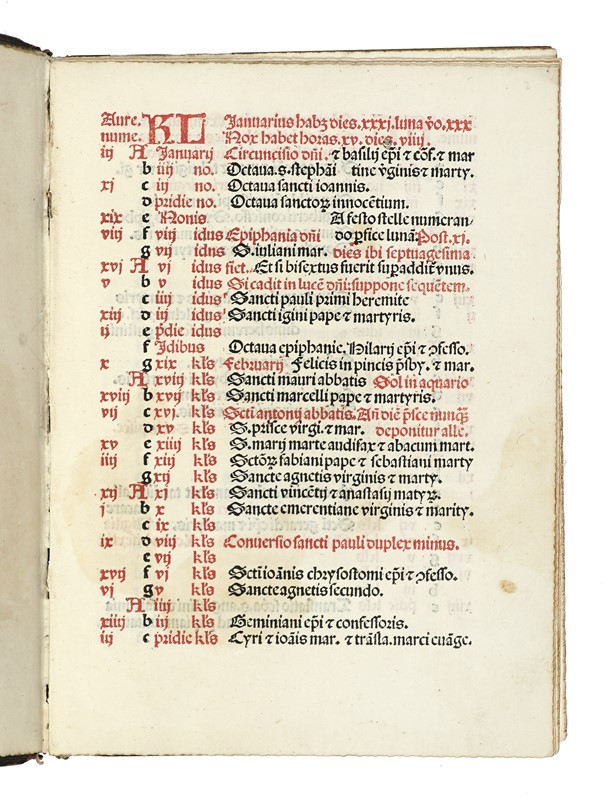 Aure. KL Januarius habꝫ dies .xxxj. luna v̄o .xxx
nume. Nox habet horas .xv. dies .viiij.
iij A Januarij Circuncisio dn̄i. ⁊ basilij ep̄i ⁊ cōf. ⁊ mar
b iiij no. Octaua .s. stephāi tine v̄ginis ⁊ marty.
xj c iij no. Octaua sancti ioannis.
d pridie no. Octaua sanctoꝝ innocētium.
xix e Nonis A festo stelle numeran-
viij f viij idus Epiphania dn̄i do ꝑfice lunā: Post .xj.
g vij idus S. iuliani mar. dies ibi septuagesima
xvj A vj idus fiet. Et si bisextus fuerit suꝑaddit᷑ vnus.
v b v idus Si cadit in lucē dn̄i: suppone sequētem.
c iiij idus Sancti pauli primi heremite
xiij d iij idus Sancti igini pape ⁊ martyris.
ij e p̄die idus
f Idibus Octaua epiphanie. Hilarij ep̄i ⁊ ꝯfesso.
x g xix kl̄s februarij Felicis in pincis p̄sby. ⁊ mar.
A xviij kl̄s Sancti mauri abbatis Sol in aquario
xviij b xvij kl̄s Sancti marcelli pape ⁊ martyris.
vij c xvj. kl̄s Scti antonij abbatis. Añ diē p̄sce nunꝙ̄
d xv kl̄s S. prisce virgi. ⁊ mar. deponitur alle.
xv e xiiij kl̄s S. marij marte audifax ⁊ abacum mart.
iiij f xiij kl̄s Sctōꝝ fabiani pape ⁊ sebastiani marty
g xij kl̄s Sancte agnetis virginis ⁊ marty.
xij A xj kl̄s Sancti vincētij ⁊ anastasij matyꝝ.
j b x kl̄s Sancte emerentiane virginis ⁊ marity.
c ix kl̄s
ix d viij kl̄s Conuersio sancti pauli duplex minus.
e vij kl̄s
xvij f vj kl̄s Sctī ioānis chrysostomi ep̄i ⁊ ꝯfesso.
vj g v kl̄s Sancte agnetis secundo.
A iiij kl̄s
xiiij b iij kl̄s Geminiani ep̄i ⁊ confessoris.
iij c pridie kl̄s Cyri ⁊ ioāis mar. ⁊ trāsla. marci euāge.